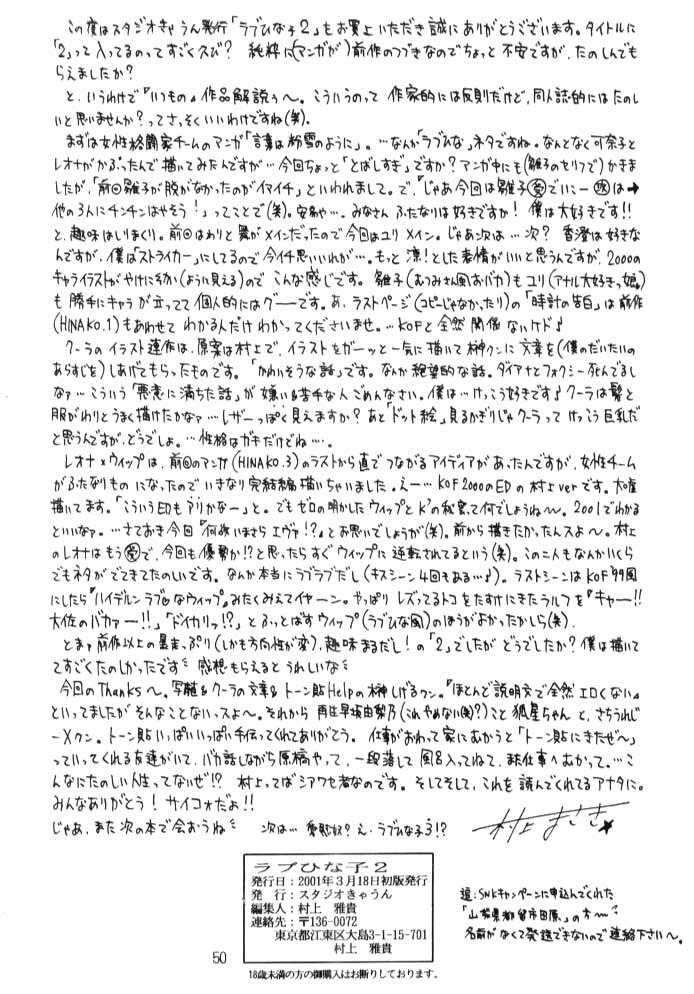 この度はスタジオきゃうん発行「ラブひな子2」をお買上いただき誠にありがとうございます。タイトルに
「2」って入ってるのってすごく久び? 純粋に(マンガが)前作のつづきなのでちょっと不安ですが、たのしんでも
らえましたか?
と、いうわけで『いつもの』作品解説ぅ〜。こういうのって 作家的には反則だけど、同人誌的にはたのし
いと思いませんか?ってさ、そくいいわけですね(笑)。
まずは女性格闘家チームのマンガ「言葉は粉雪のように」。…なんか「ラブひな」ネタですね。なんとなく可奈子と
レオナがかぶったんで描いてみたんですが…今回ちょっと「とばしすぎ」ですか?マンガ中にも(雛子のセリフで)かきま
したが、「前回雛子が脱がなかったのがイマイチ」といわれまして。で、「じゃあ今回は雛子
他の3人にチンチンはやそう!」ってことで(笑)。安易や…。みなさん ふたなりは好きですか! 僕は大好きです!!
と、趣味はしりまくり。前回はわりと舞がメインだったので今回はユリメイン。じゃあ次は…次? 香澄は好きな
んですが、僕は「ストライカー」にしてるので今イチ思いいれが…。もっと凛!とした表情がいいと思うんですが、2000の
キャライラストがやけに幼か(ように見える)ので こんな感じです。 雛子(むつみさん風おバカ)もユリ(アナル大好きっ娘)
も勝手にキャラが立ってて個人的にはグーです。あ、ラストページ(コピーじゃなかったり)の「時計の告白」は前作
(HINAKO.1)もあわせて わかる人だけ わかってくださいませ。…KOFと全然関係ないケド♪
クーラのイラスト連作は、原案は村上で、イラストをガーッと一気に描いて榊クンに文章を(僕のだいたいの
あらすじを)しあげてもらったものです。「かわいそうな話」です。なんか絶望的な話。ダイアナとフォクシー死んでるし
なァ…こういう「悪意に満ちた話」が嫌い&苦手な人ごめんなさい。僕は…けっこう好きです♪クーラは髪と
服がわりとうまく描けたかなァ…レザーっぽく見えますか?あと「ドット絵」見るかぎりじゃクーラって けっこう巨乳だ
と思うんですが、どうでしょ。…性格はガキだけどね…。
レオナ×ウィップは、前回のマンガ(HINAKO.3)のラストから直でつながるアイディアがあったんですが、女性チーム
がふたなりもの になったので いきなり完結編描いちゃいました。えー…KOF2000のEDの村上verです。大嘘
描いてます。「こういうEDもアリかなー」と。でもゼロの明かしたウィップとK'の秘密って何でしょうね〜。2001でわかる
といいなァ。…さておき今回『何故いまさらエヴァ!?』とお思いでしょうが(笑)。前から描きたかったんスよ〜。村上
のレオナはもう で、今回も優勢か!?と思ったらすぐウィップに逆転されてるという(笑)。この二人もなんかいくら
でもネタができてたのしいです。なんか本当にラブラブだし(キスシーン4回もある…♪)。ラストシーンはKOF'99風
にしたら『ハイデルンラブ♡なウィップ』みたくみえてイヤーン。やっぱり レズってるトコをたすけにきたラルフを『キャー!!
大佐のバカァー!!』「ドイカリッ!?」とふっとばすウィップ(ラブひな風)のほうがよかったかしら(笑)。
とまァ前作以上の暴走っぷり(しかも方向性が変)、趣味まるだし!の「2」でしたが どうでしたか?僕は描いて
てすごくたのしかったです 感想もらえると うれしいな
今回のThanks〜。写植&クーラの文章&トーン貼Helpの榊しげるクン。『ほとんど説明文で全然エロくない』
といってましたが そんなことないっスよ〜。それから 再生早坂由梨乃(これやめない(笑)?)こと 狐星ちゃん と、さちうれじ
ーXクン。トーン貼いっぱいいっぱい手伝ってくれてありがとう。仕事がおわって家にむかうと「トーン貼にきたぜ〜」
っていってくれる友達がいて、バカ話しながら原稿やって、一段落して風呂入ってねて、また仕事へむかって。…こ
んなにたのしい人生ってないぜ!? 村上ってばシアワセ者なのです。そしてそして、これを読んでくれてるアナタに。
みんなありがとう! サイコォだよ!!
じゃあ、また次の本で会おうね 次は… え、ラブひな子3!?
村上まさき
ラブひな子2
発行日:2001年3月18日初版発行
発 行:スタジオきゃうん
編集人:村上 雅貴
連絡先:〒136-0072
東京都江東区大島3-1-15-701
村上 雅貴
18歳未満の方の御購入はお断りしております。
追:SNKキャンペーンに申込んでくれた
「山梨県都留市田原」の方〜
名前がなくて発送できないので連絡下さい〜。
50